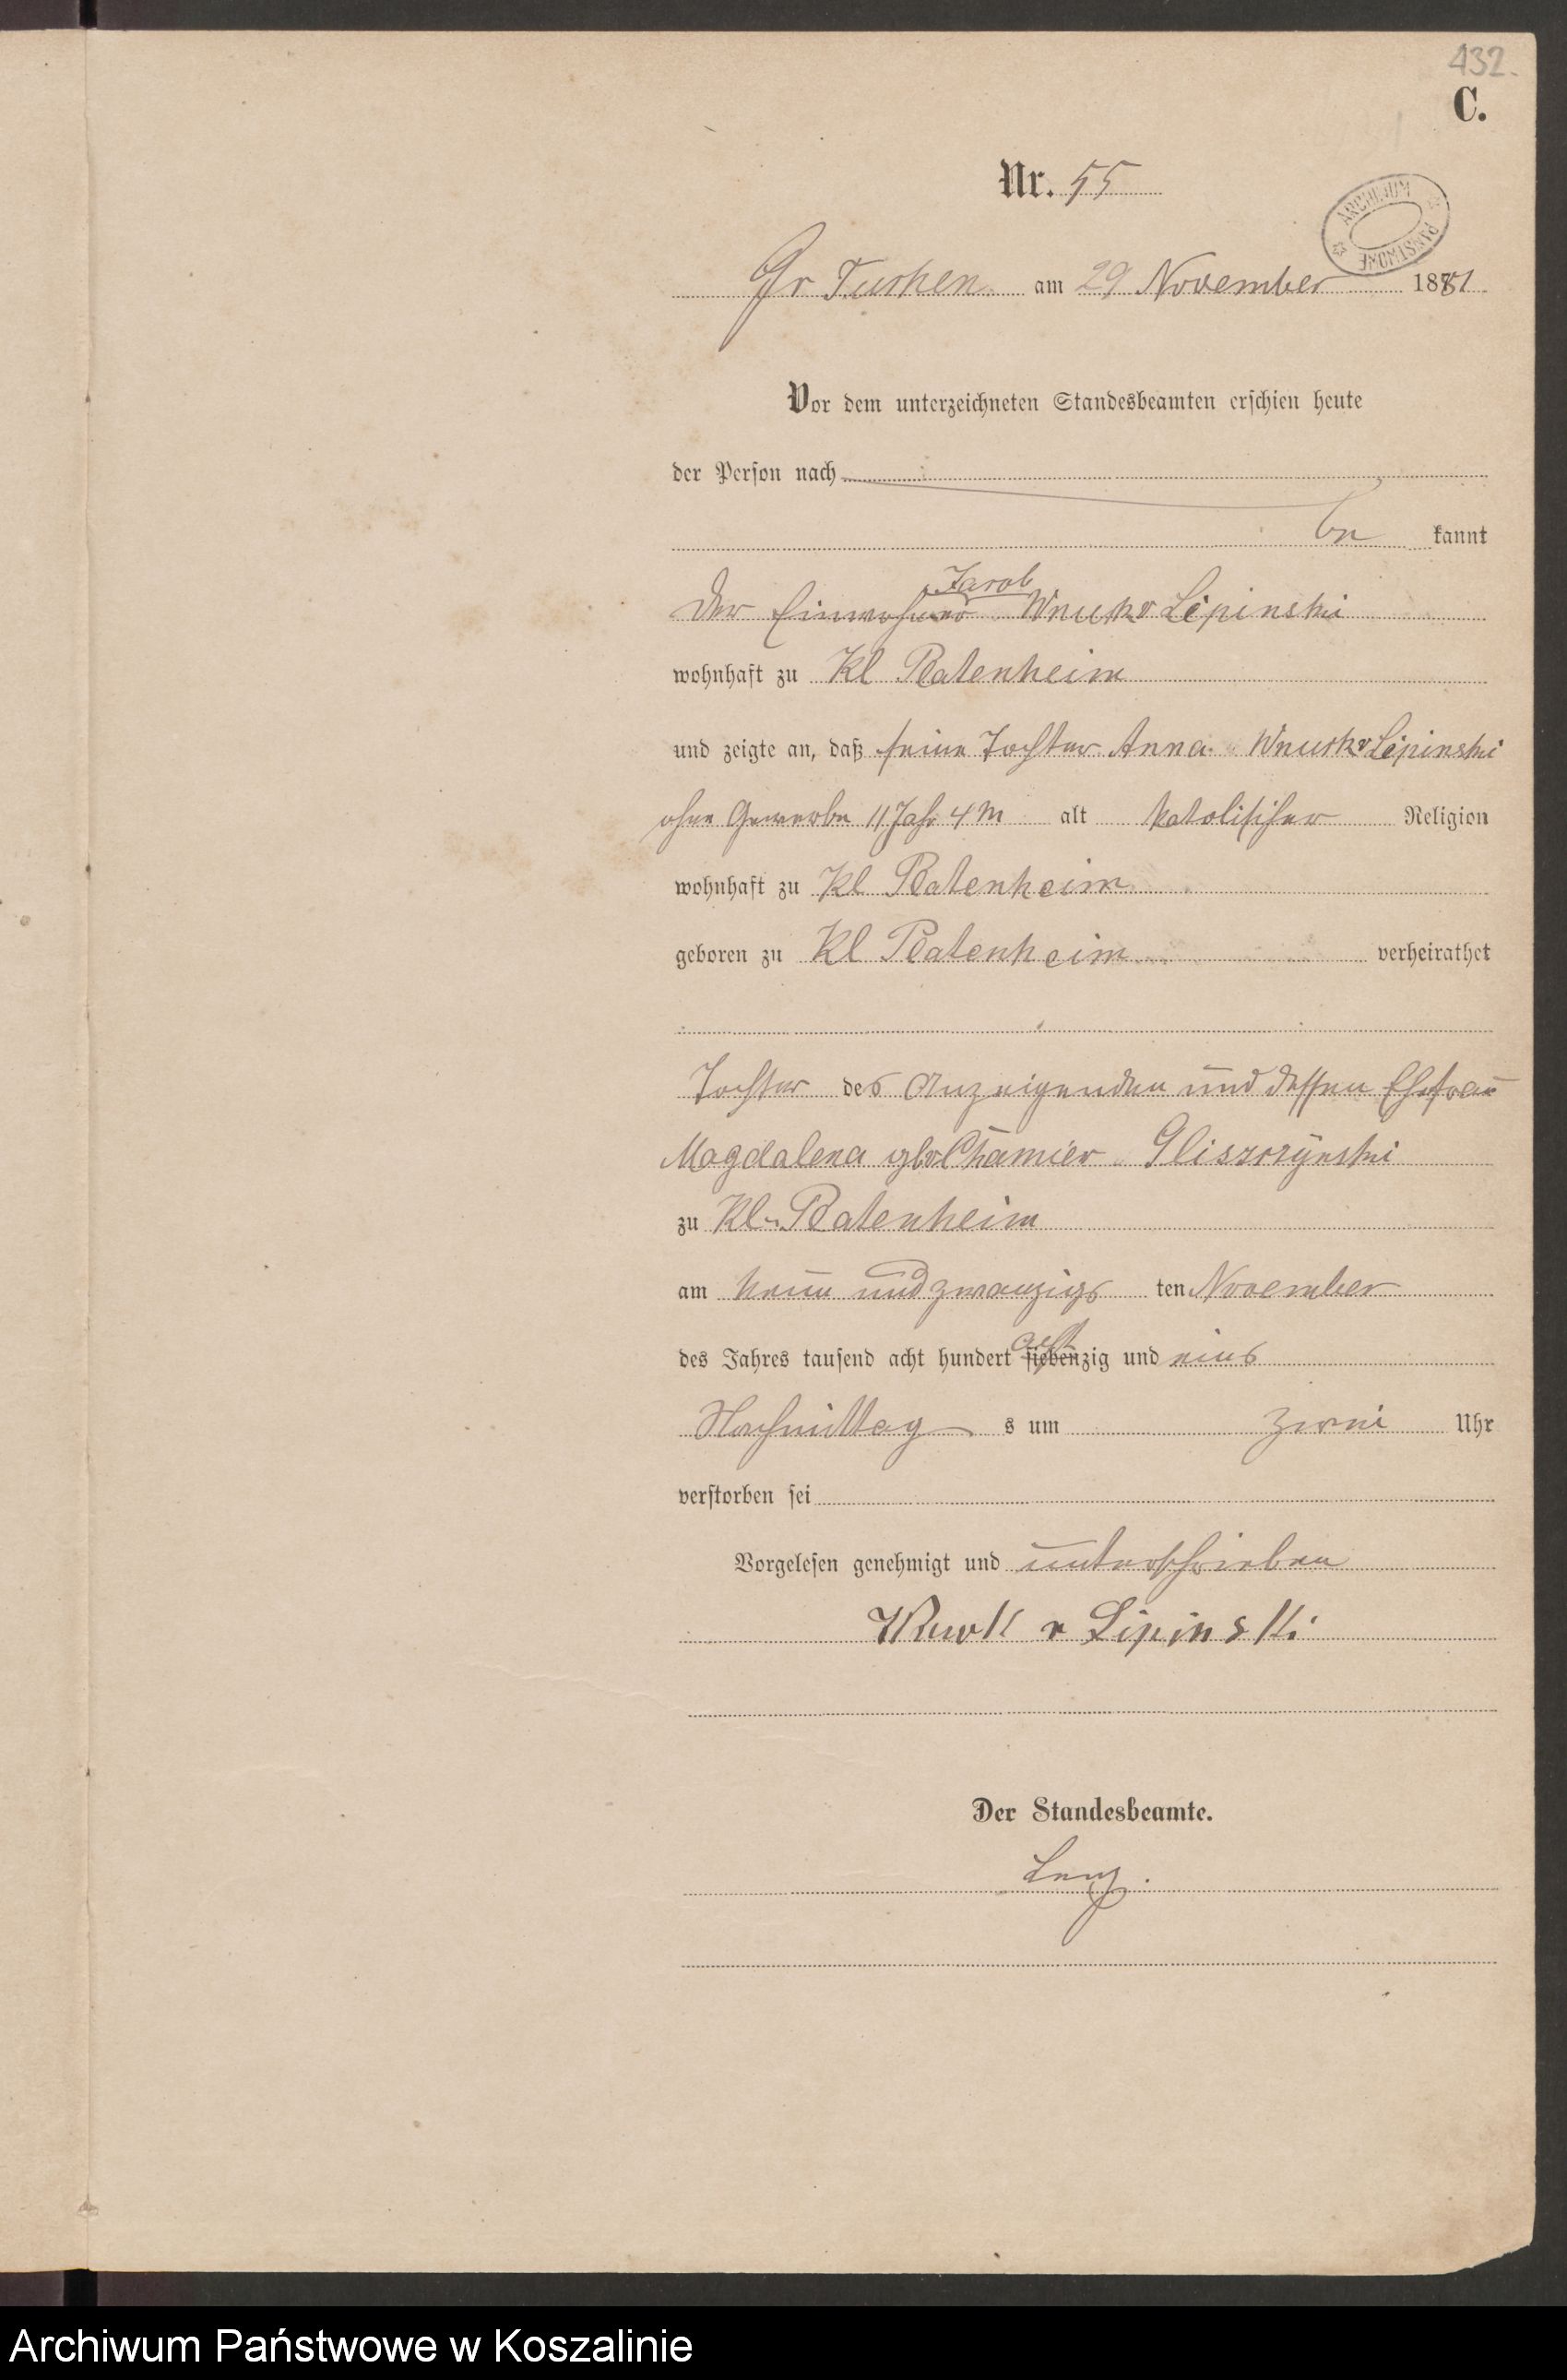 432.
C.
Nr. 55
ARCHIWUM PAŃSTWOWE
Gr Tuchen am 29 November 1881
Vor dem unterzeichneten Standesbeamten erschien heute
der Person nach
be kannt
Jacob
der Einwohner Wnuck v Lipinski
wohnhaft zu Kl Platenheim
und zeigte an, daß seine Tochter Anna Wnuck v Lipinski
ohne Gewerbe 11 Jahr 4 M alt katolischer Religion
wohnhaft zu Kl Platenheim
geboren zu Kl Platenheim verheirathet
Tochter des Anzeigenden und dessen Ehefrau
Magdalena gb v Chamier Gliszczynski
zu Kl. Platenheim
am neun und zwanzigs ten November
acht
des Jahres tausend acht hundert siebenzig und eins
Nachmittag s um zwei Uhr
verstorben sei
Vorgelesen genehmigt und unterschrieben
Wnuk v Lipinski
Der Standesbeamte.
Lenz.
Archiwum Państwowe w Koszalinie